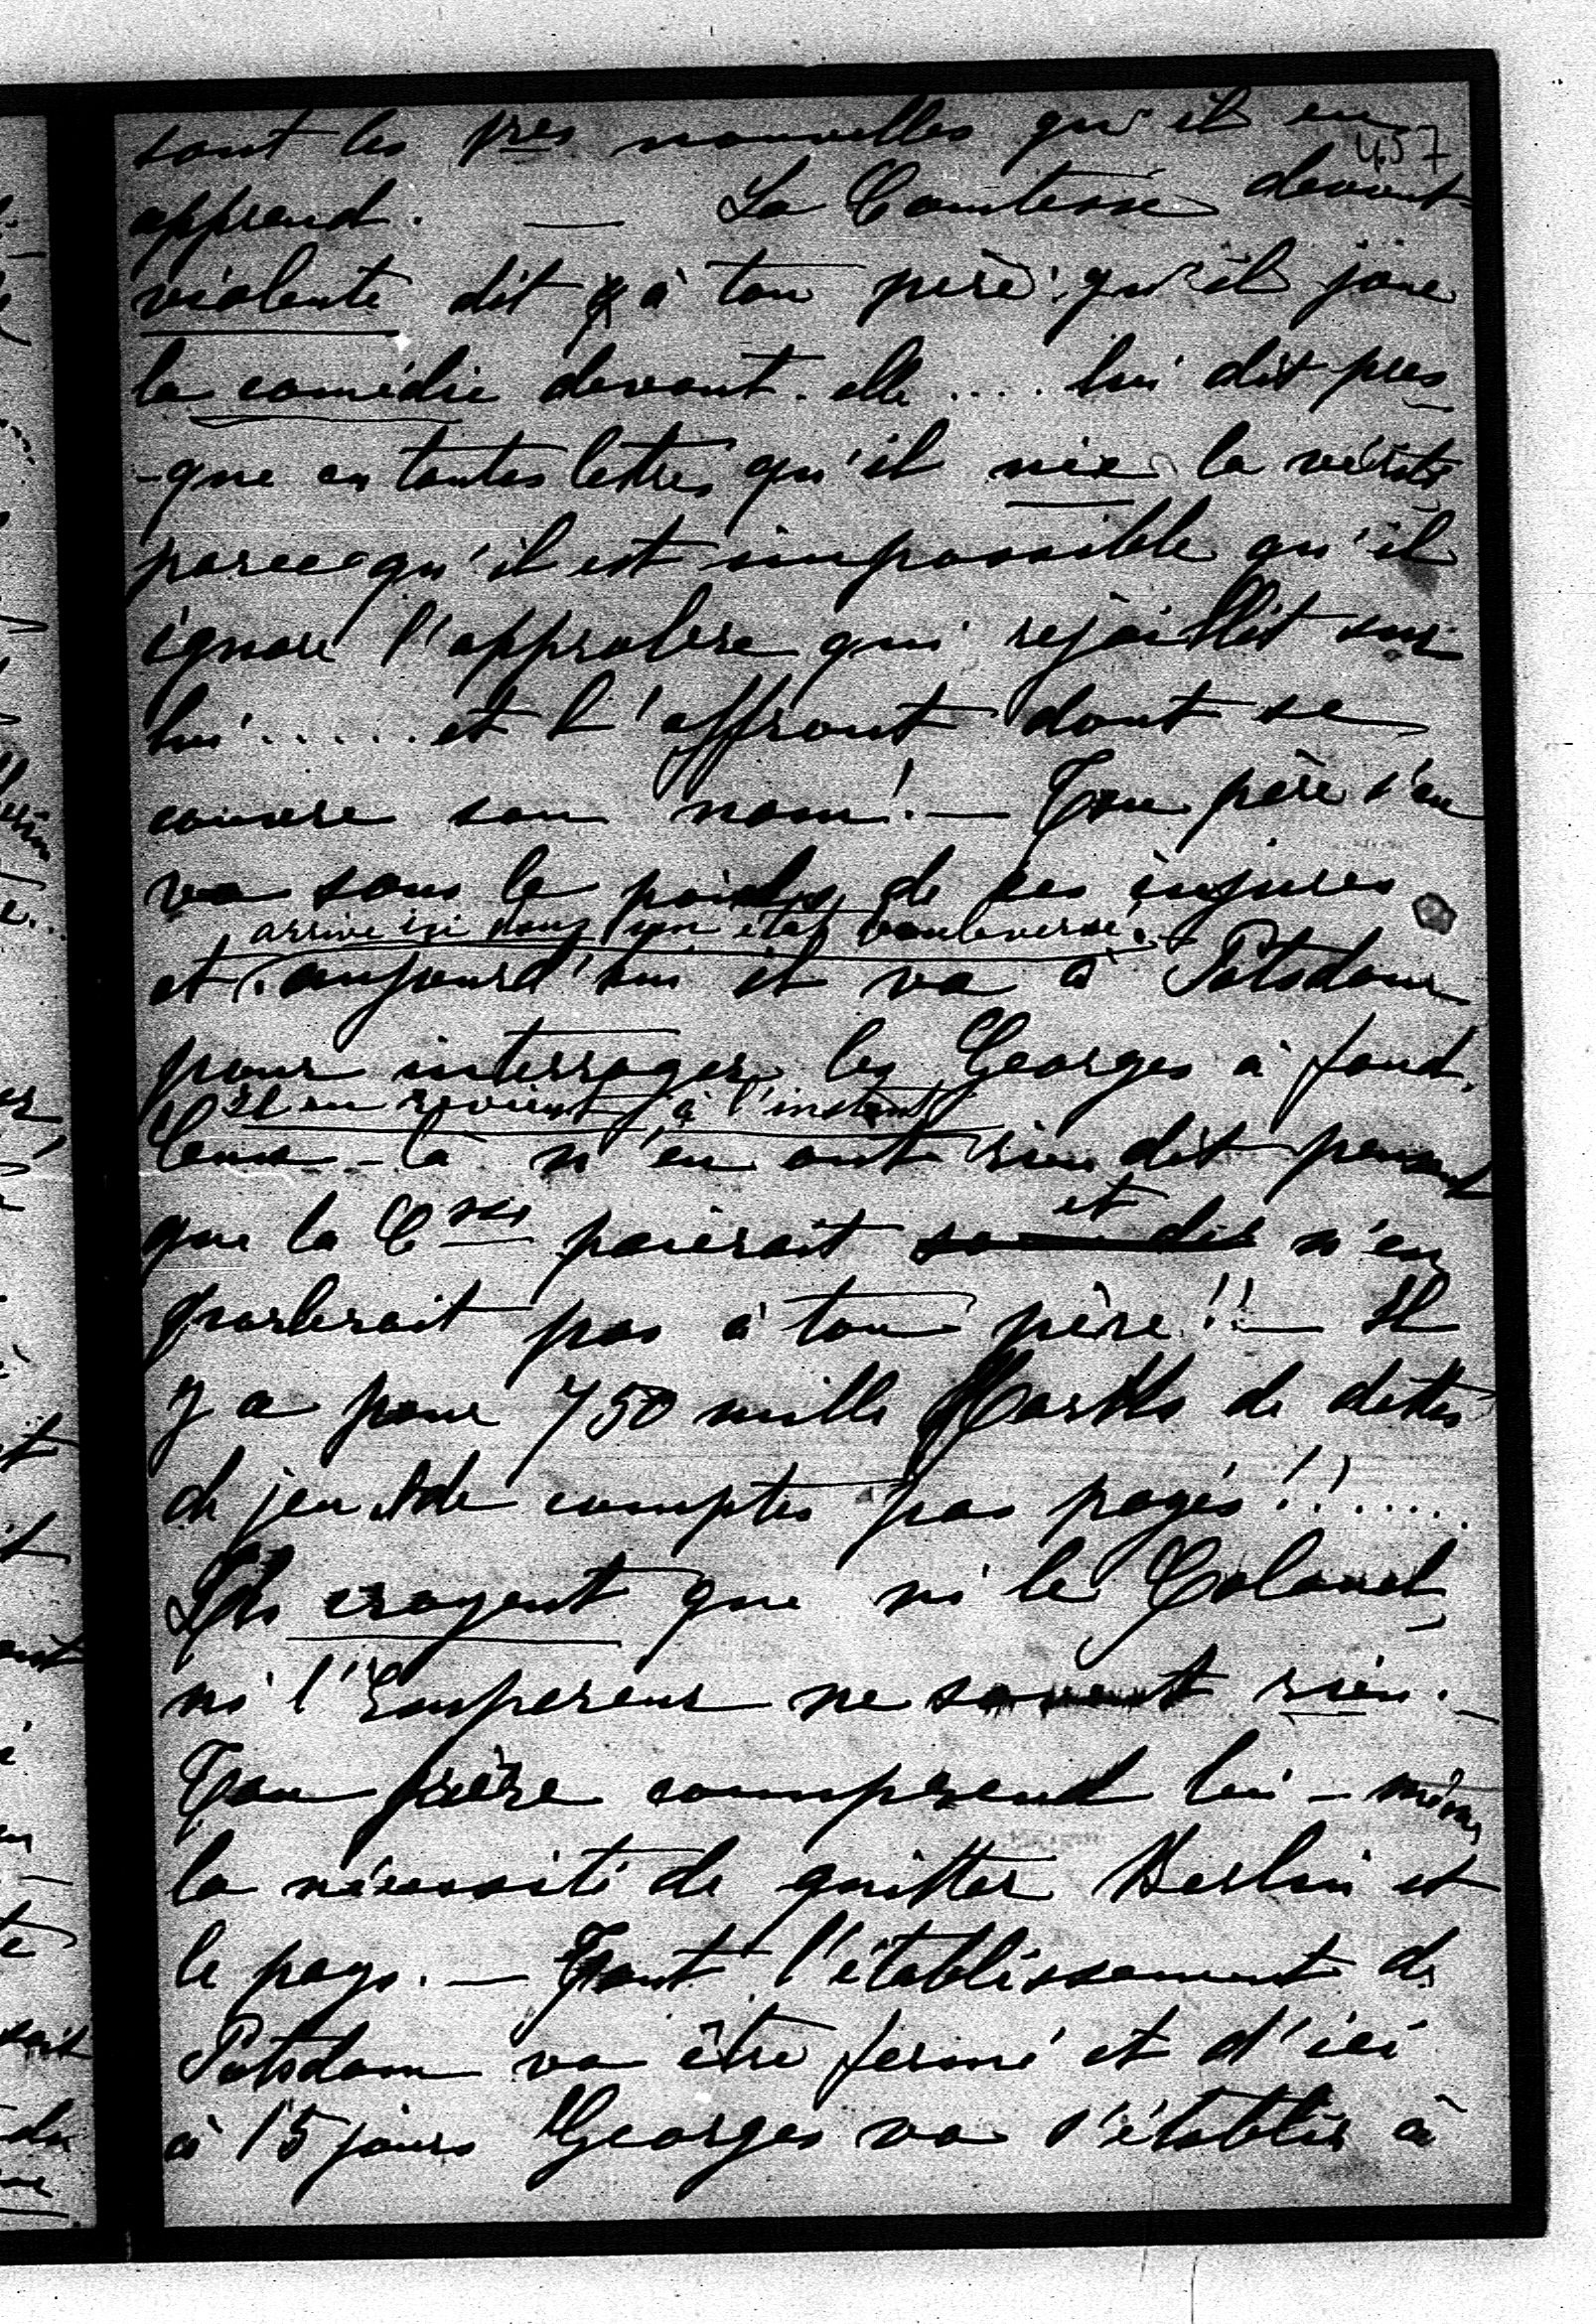 sont les pres nouvelles qu'il en
457
apprend. — La Comtesse devient
violente dit à ton père qu'il joue
la comédie devant elle .... lui dit pres
-que en toutes lettres qu'il nie la vérité
parce qu'il est impossible qu'il
ignore l'opprobre qui rejaillit sur
lui ..... et l'affront dont se
couvre son nom! — Ton père s'en
va sous le poids de ces injures
arrive ici dans un état bouleversé.
et aujourd'hui il va à Potsdam
pour interroger les Georges à fond.
Il en revient à l'instant
Ceux-là n'en ont rien dit pensant
que la Csse paierait et n'en
parlerait pas à ton père!! — Il
y a pour 750 mille Marks de dettes
de jeu et de comptes pas payés!! ....
Ils croyent que ni le Colonel,
ni l'Empereur ne savent rien. —
Ton frère comprend lui-même
la nécessité de quitter Berlin et
le pays. — Tout l'établissement de
Potsdam va être fermé et d'ici
à 15 jours Georges va s'établir à